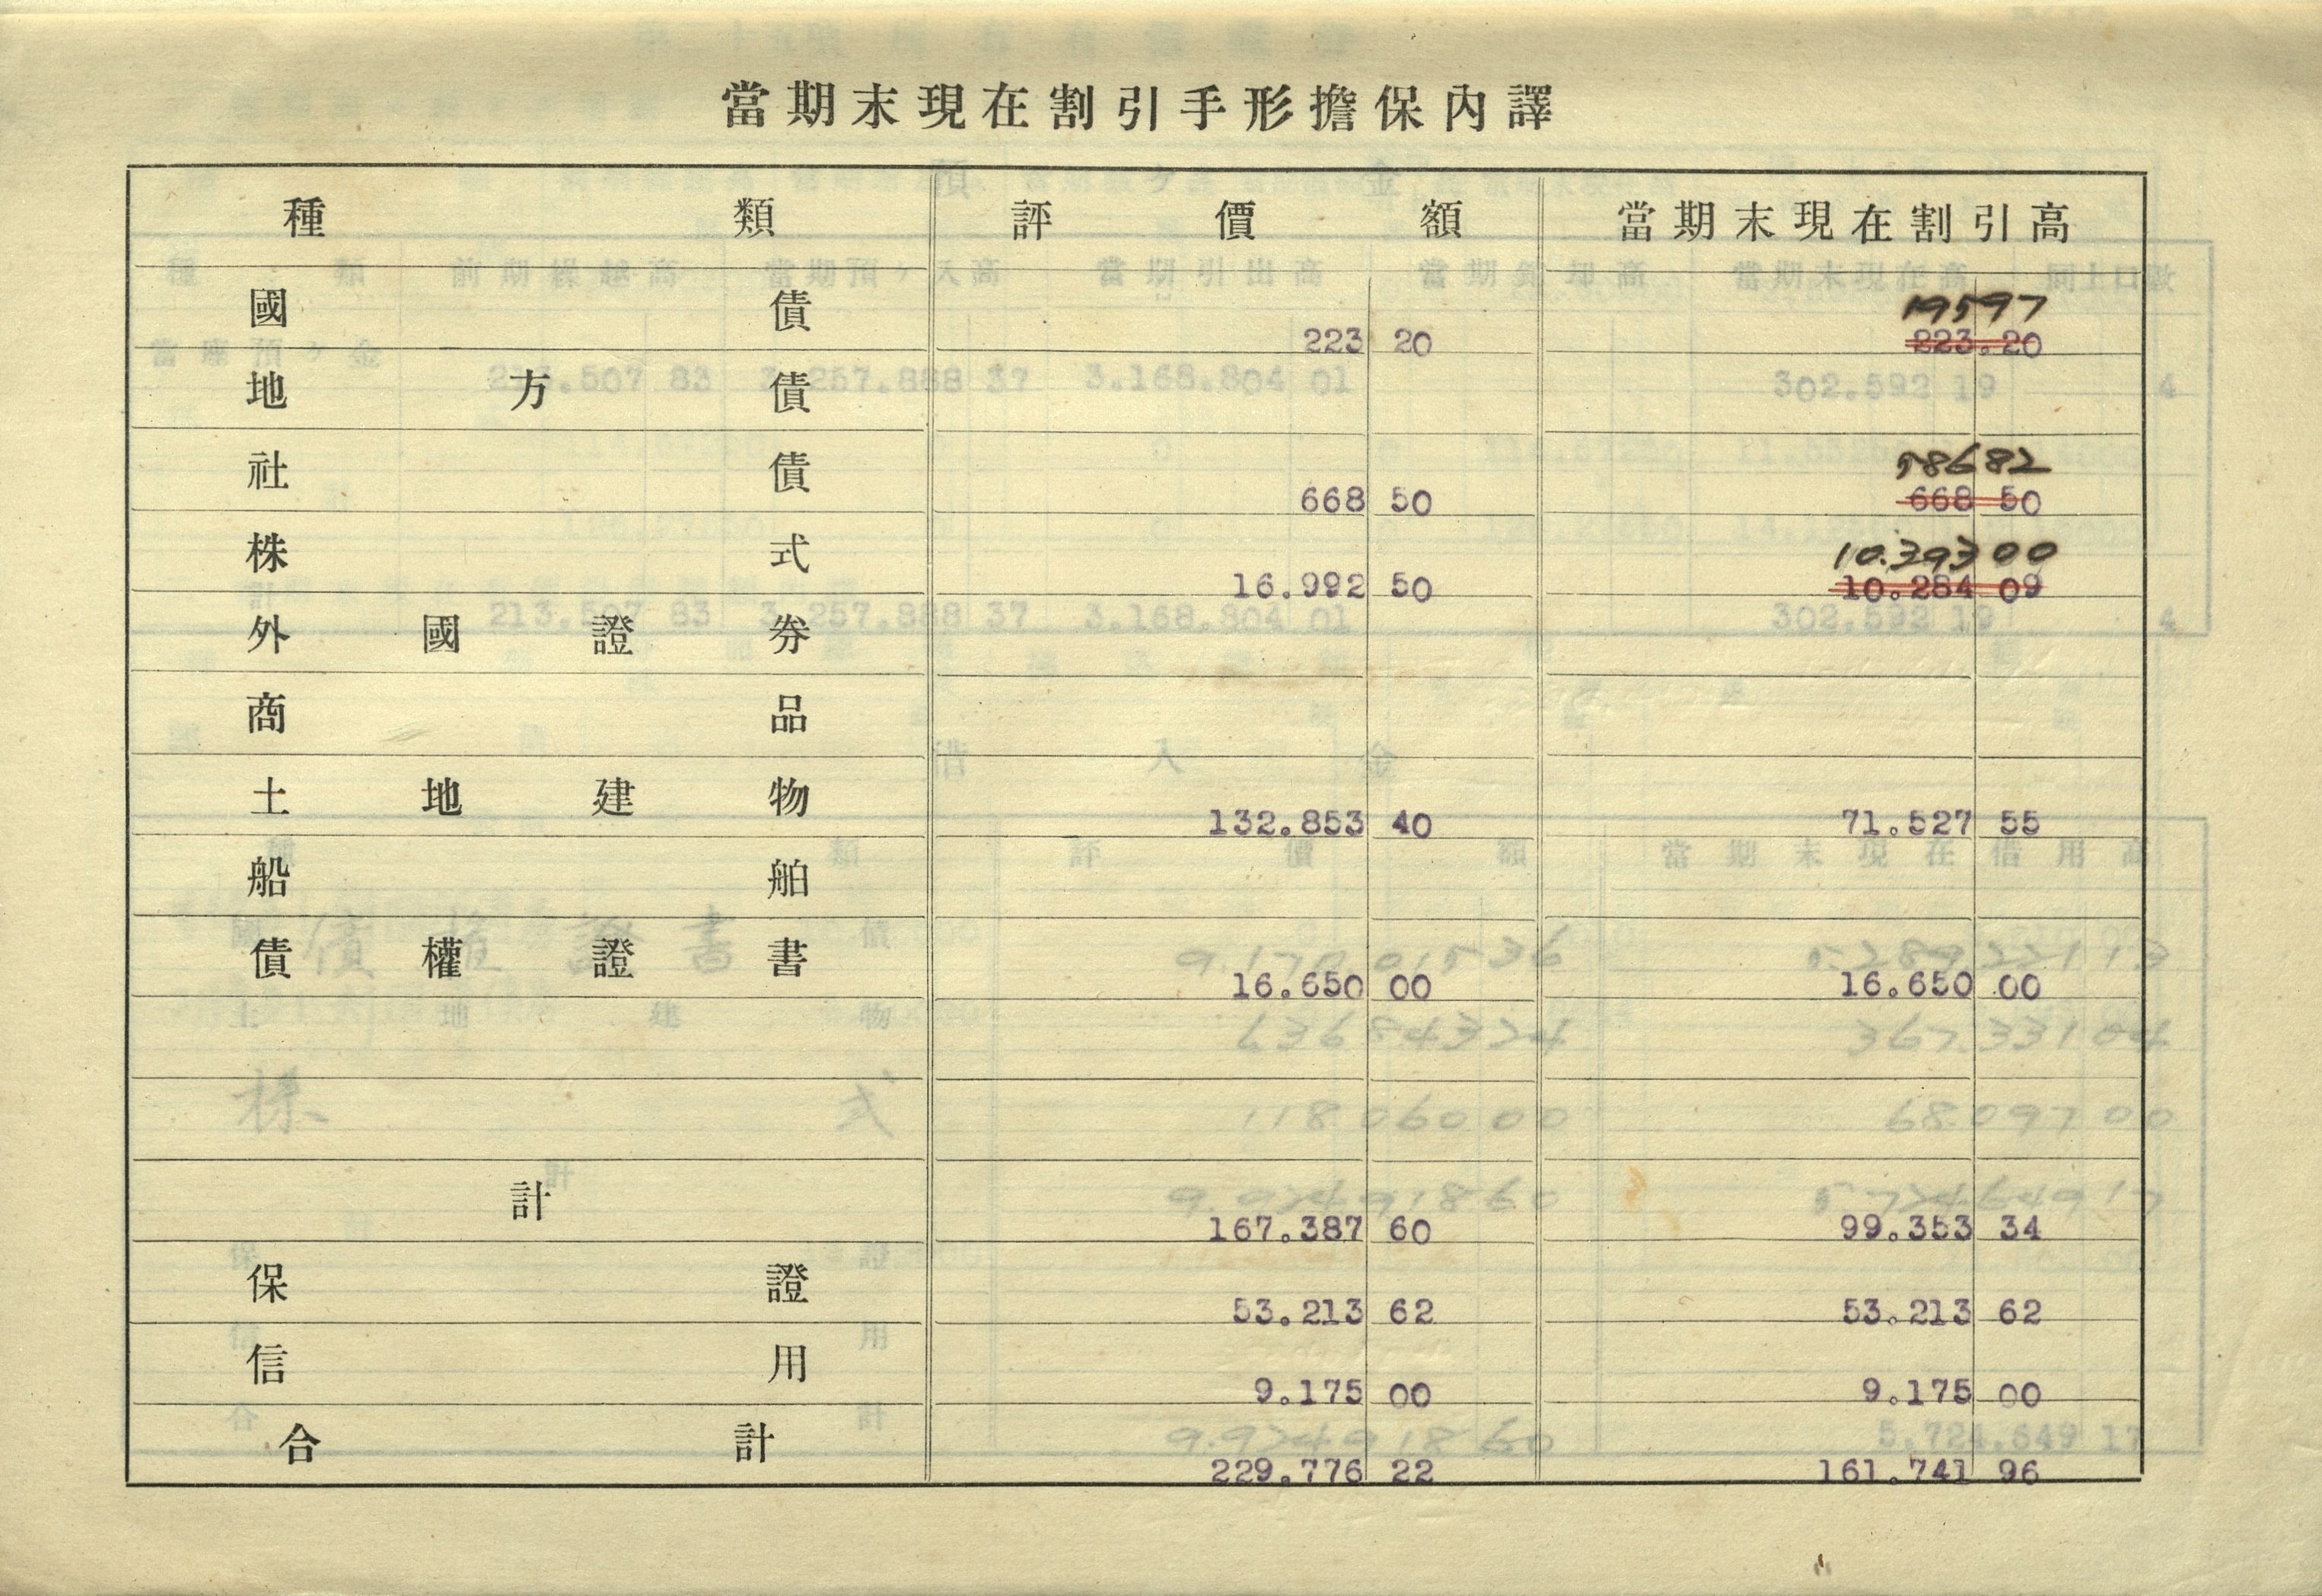 當期末現在割引手形擔保內譯
種類 評價額 當期末現在割引高
19597
國債 223 20 223.20
地方債
58682
社債 668 50 668 50
10.393 00
株式 16.992 50 10.284 09
外國證券
商品
土地建物 132.853 40 71.527 55
船舶
債權證書 16.650 00 16.650 00
計 167.387 60 99.353 34
保證 53.213 62 53.213 62
信用 9.175 00 9.175 00
合計 229.776 22 161.741 96